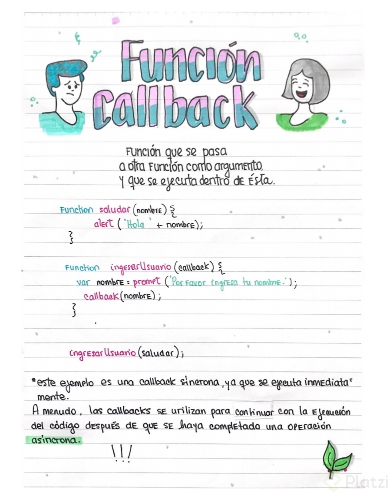 Función
Callback
Función que se pasa
a otra Función como argumento
y que se ejecuta dentro de Ésta.
Function saludar (nombre) {
alert ('Hola ' + nombre);
}
Function ingresarUsuario (callback) {
var nombre = prompt ('Por Favor ingresa tu nombre.');
callback (nombre);
}
ingresarUsuario (saludar);
*este ejemplo es una callback síncrona, ya que se ejecuta inmediata-
mente.
A menudo, las callbacks se utilizan para continuar con la ejecución
del código después de que se haya completado una operación
asíncrona.
!!!
Platzi